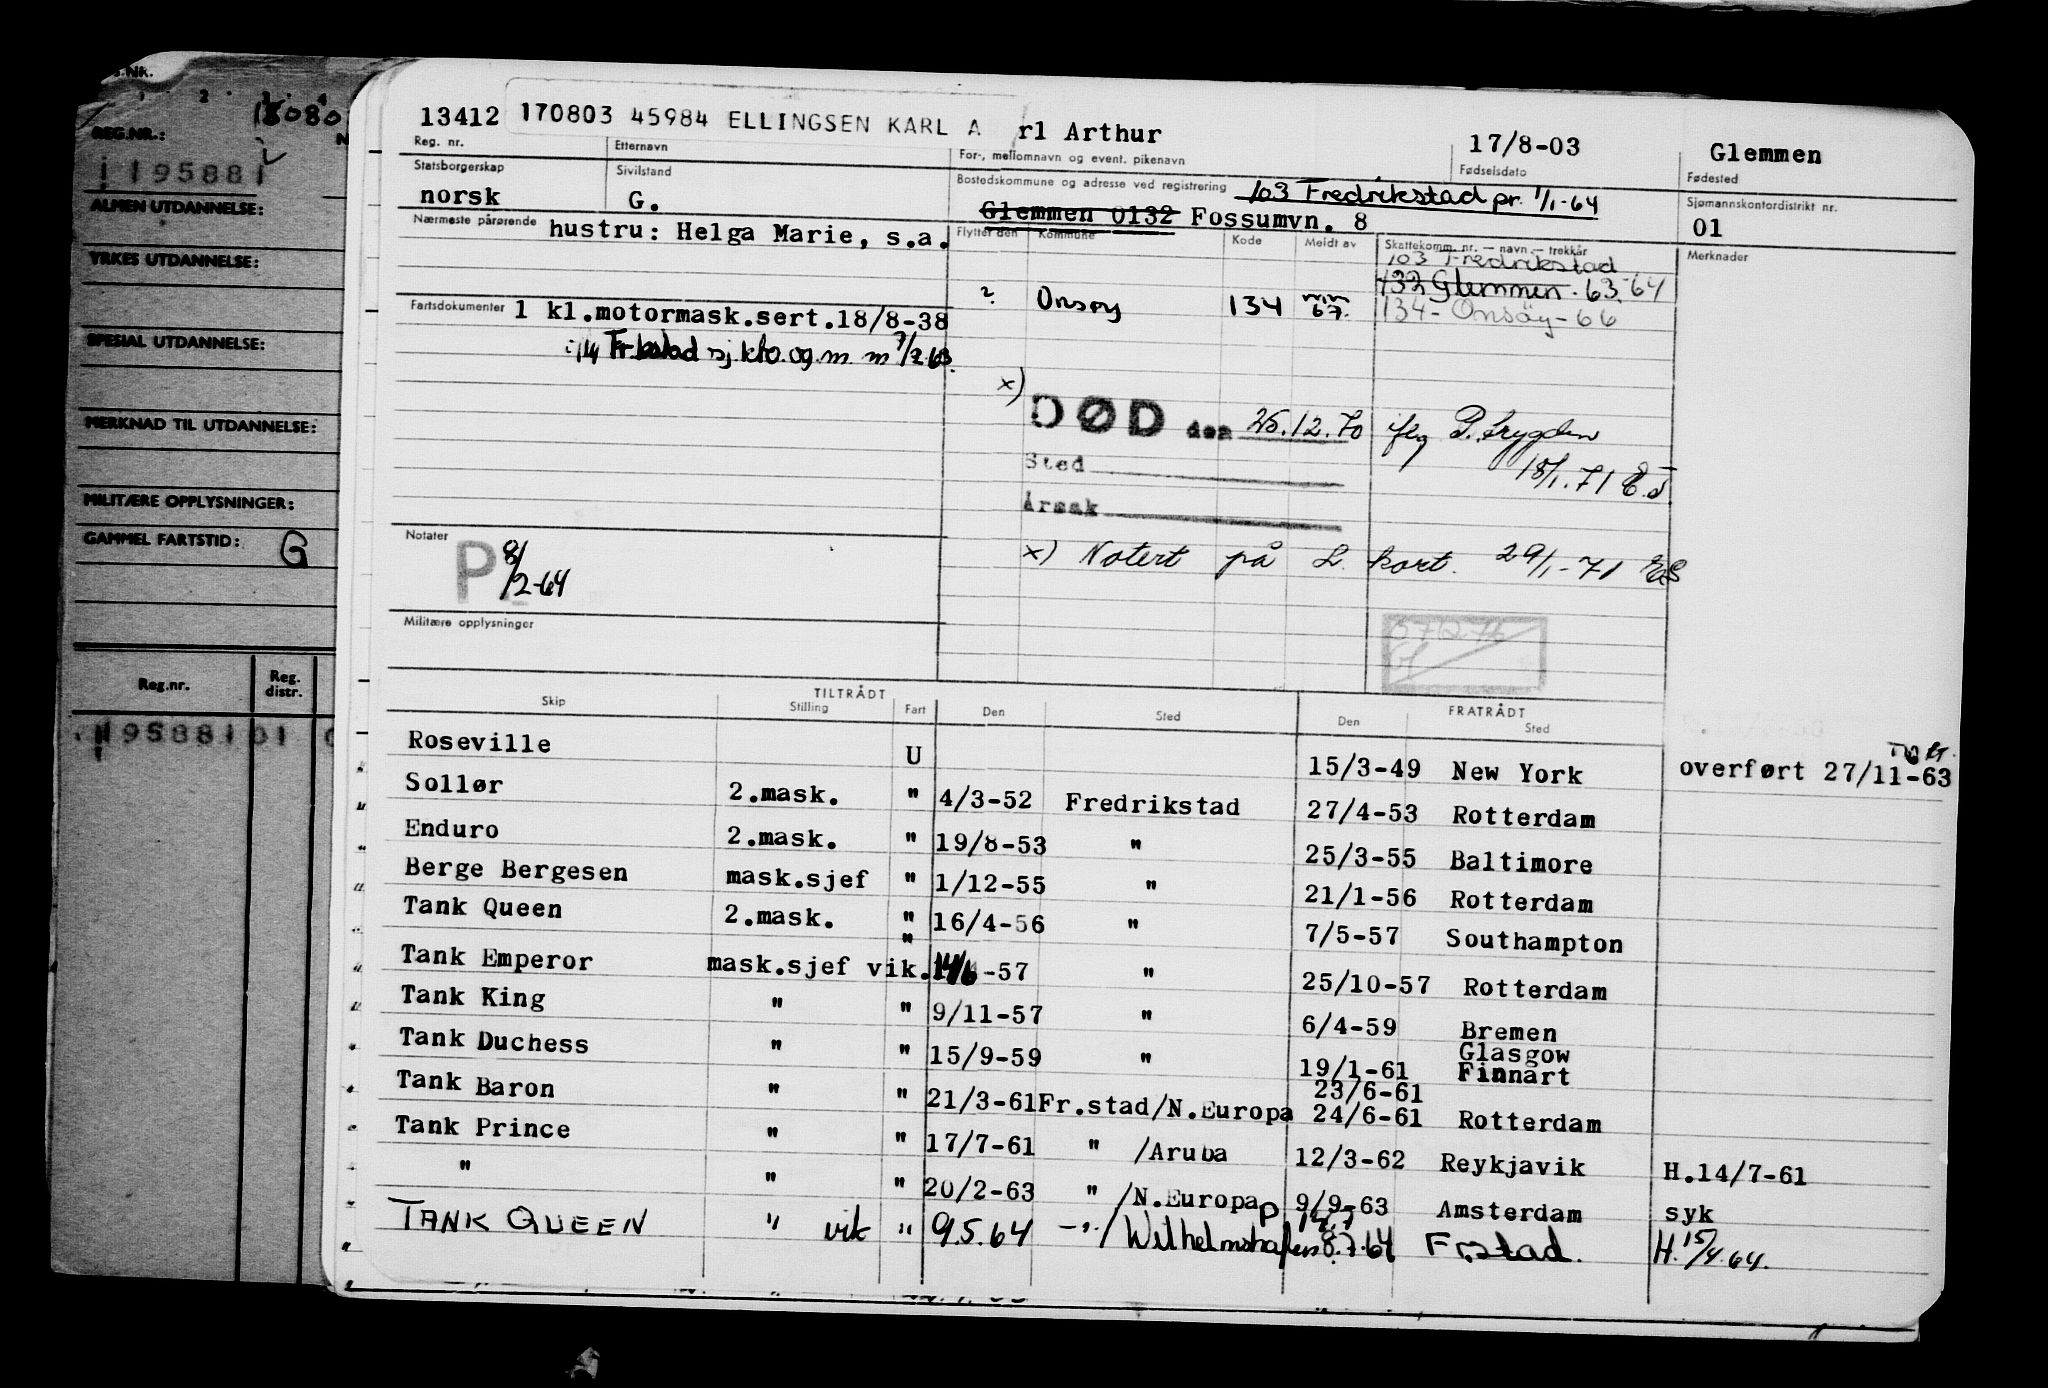 REG.NR.:
195881
ALMEN UTDANNELSE:
YRKES UTDANNELSE:
SPESIAL UTDANNELSE:
MERKNAD TIL UTDANNELSE:
MILITÆRE OPPLYSNINGER:
GAMMEL FARTSTID: G
Reg.nr. Reg. distr.
195881 01
13412 170803 45984 ELLINGSEN KARL A rl Arthur 17/8-03 Glemmen
Reg. nr. Etternavn For-, mellomnavn og event. pikenavn Fødselsdato Fødested
Statsborgerskap Sivilstand Bostedskommune og adresse ved registrering 103 Fredrikstad pr. 1/1-64 Sjømannskontordistrikt nr.
norsk G. Glemmen 0132 Fossumvn. 8 01
Nærmeste pårørende hustru: Helga Marie, s.a. Flyttet den Kommune Kode Meldt av Skattekomm. nr. — navn — trekkår Merknader
103 Fredrikstad
132 Glemmen - 63-64
? Onsøy 134 67. 134- Onsöy - 66
Fartsdokumenter 1 kl.motormask.sert.18/8-38
x)
DØD den 25.12.70 iflg P. Trygden
18/1.71 E.J.
Sted
Årsak
Notater
P 8/2-64
x) Notert på L. kort. 29/1-71
Militære opplysninger
TILTRÅDT FRATRÅDT
Skip Stilling Fart Den Sted Den Sted
Roseville U 15/3-49 New York overført 27/11-63
Sollør 2.mask. " 4/3-52 Fredrikstad 27/4-53 Rotterdam
Enduro 2.mask. " 19/8-53 " 25/3-55 Baltimore
Berge Bergesen mask.sjef " 1/12-55 " 21/1-56 Rotterdam
Tank Queen 2.mask. " 16/4-56 " 7/5-57 Southampton
Tank Emperor mask.sjef vik. " 14/6-57 " 25/10-57 Rotterdam
Tank King " " 9/11-57 " 6/4-59 Bremen
Tank Duchess " " 15/9-59 " 19/1-61 Glasgow Finnart
Tank Baron " " 21/3-61 Fr.stad/N.Europa 23/6-61 24/6-61 Rotterdam
Tank Prince " " 17/7-61 " /Aruba 12/3-62 Reykjavik H.14/7-61
" " " 20/2-63 " /N.Europa 9/9-63 Amsterdam syk
TANK QUEEN " vik " 9.5.64 -"-/Wilhelmshafen 8.7.64 Fr.stad. H.15/4.64.